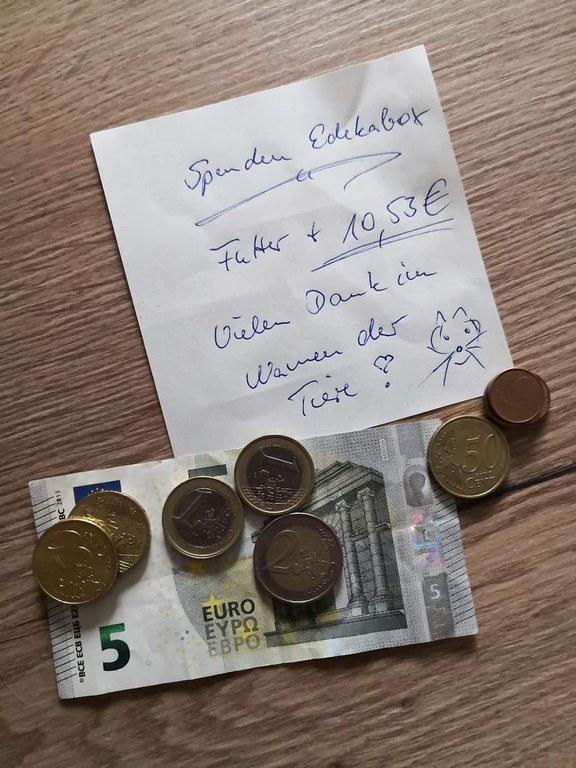 Spenden Edekabox
Futter + 10,53 €
Vielen Dank im
Namen der
Tiere
1
1
2
50
CENT
50
©BCE ECB ЕЦБ EZB
2013
5
EURO
ΕΥΡΩ
ЕВРО
5